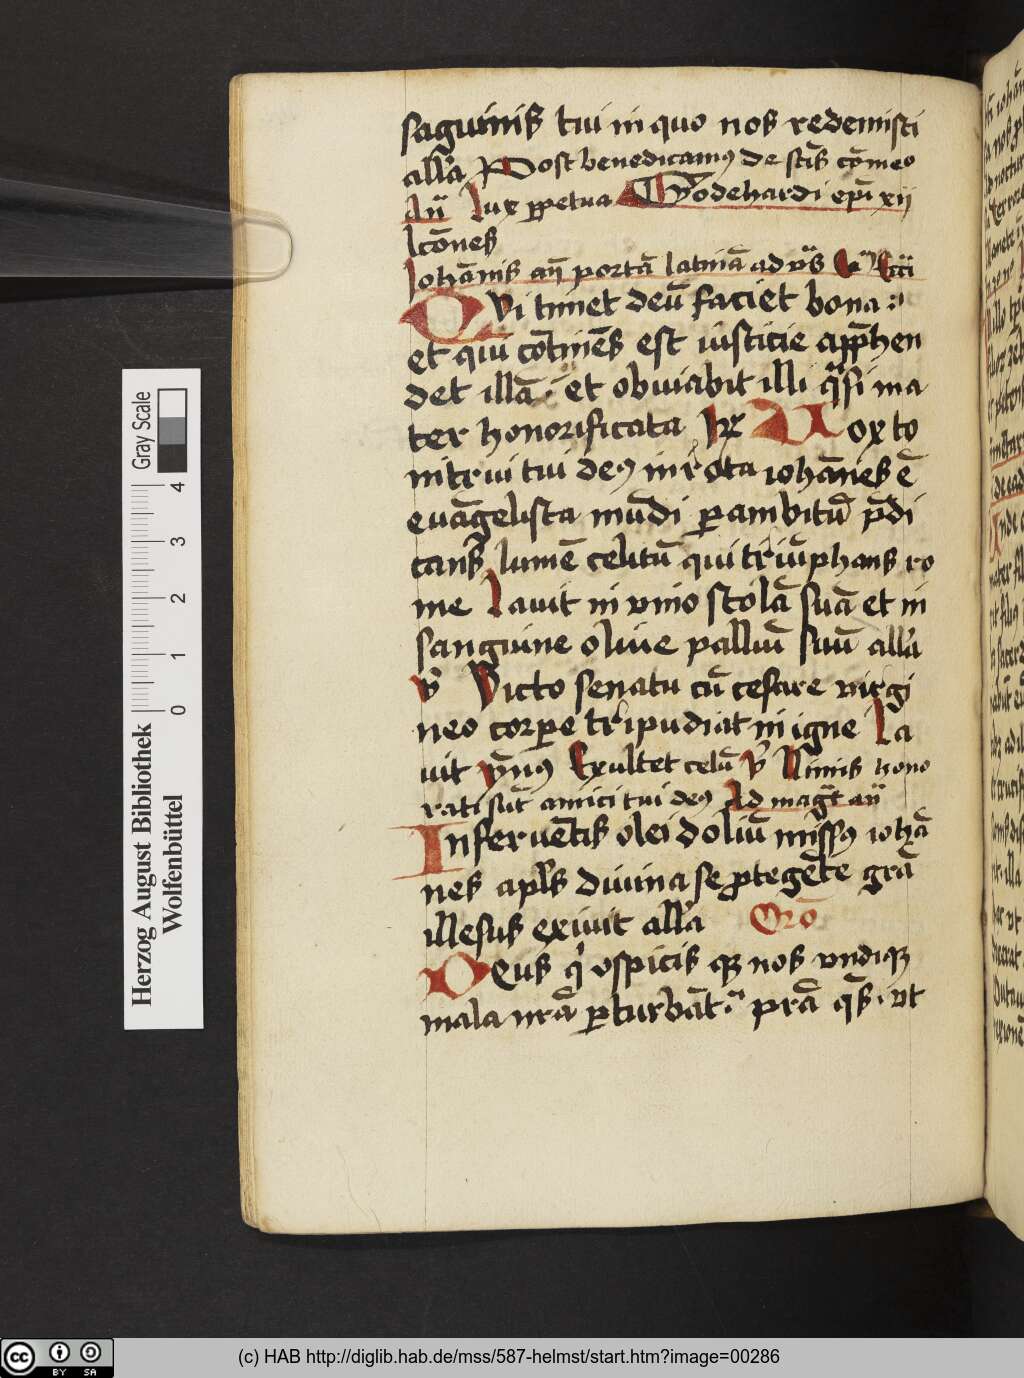 saguinis tui in quo nos redemisti
all'a Post benedicamꝰ de sctis cōmeo
An̄ Lux ꝑpetua Godehardi epī xij
lcōnes
Johānis an̄ portā latinā ad vꝰs Ca Ecci
Qvi timet deū faciet bona :
et qui cōtinēs est iusticie apphen
det illā · et obviabit illi qꝰsi ma
ter honorificata Vox to
nitrui tui deꝰ in rota iohānes ē
euāgelista mūdi ꝑ ambitū p̄di
cans lumē celitū qui triūphans ro
me Lauit in vino stolā suā et in
sanguine oliue palliū suū all'a
v̓ Victo senatu cū cesare virgi
neo corꝑe tripudiat in igne La
uit ympnꝰ Exultet celū v̓ Nimis hono
rati sūt amici tui deꝰ Ad magt̄ an̄
In feruētis olei doliū missꝰ iohā
nes apl's diuina se ꝓtegēte grā
illesus exiuit all'a Orō
Deus qͥ ɔspicis qꝫ nos vndiqꝫ
mala nrā ꝑturbāt · prā qs̄ · vt
Herzog August Bibliothek
Wolfenbüttel
Gray Scale
0 1 2 3 4
cc BY SA
(c) HAB http://diglib.hab.de/mss/587-helmst/start.htm?image=00286